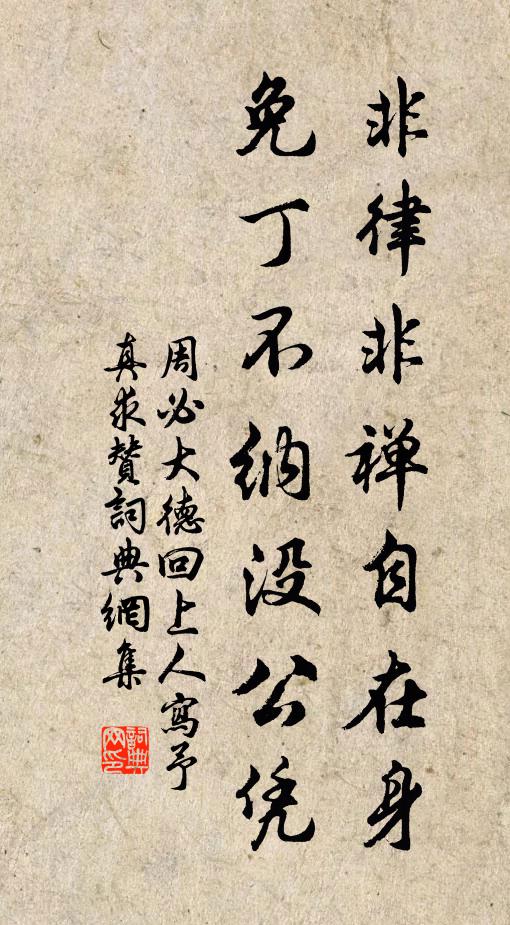 非律非禅自在身
免丁不纳没公凭
周必大德回上人寫予
真求賛詞典網集
詞典
网印